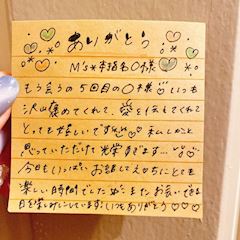 ありがとう
M's*本指名〇様♡
もう会うの5回目の〇様♡いつも
沢山褒めてくれて、愛を伝えてくれて
とっても嬉しいです♡♡私しかと
思っていただけて光栄すぎます…♡
今日もいっぱいお話してえっちにとても
楽しい時間でした♡またお会いできる
日を楽しみにしています!いつもありがとう♡♡♡